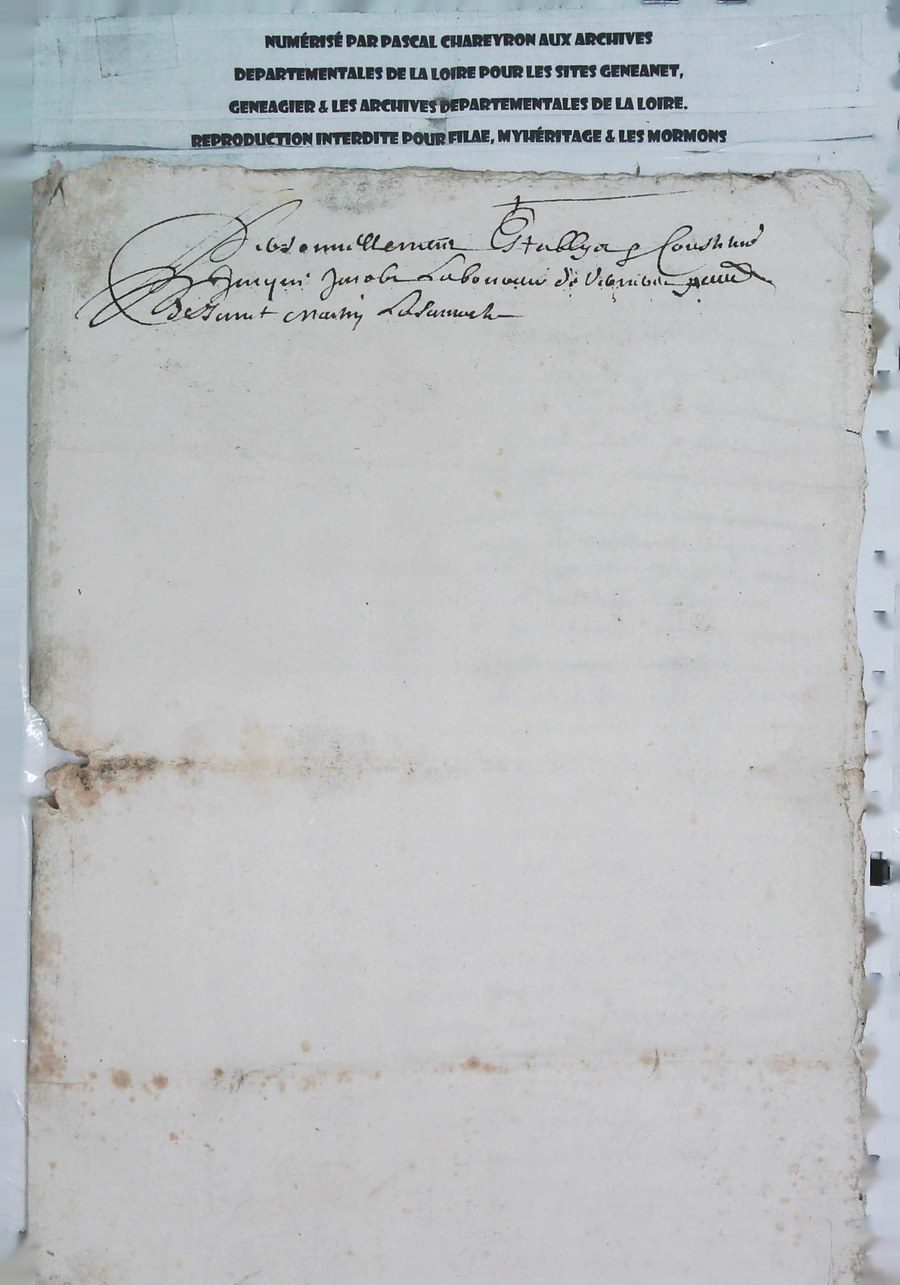 NUMÉRISÉ PAR PASCAL CHAREYRON AUX ARCHIVES
DEPARTEMENTALES DE LA LOIRE POUR LES SITES GENEANET,
GENEAGIER & LES ARCHIVES DEPARTEMENTALES DE LA LOIRE.
REPRODUCTION INTERDITE POUR FILAE, MYHÉRITAGE & LES MORMONS
Personnellement Estably & Constitué
Jacques Laboureur de
de Sainct Martin